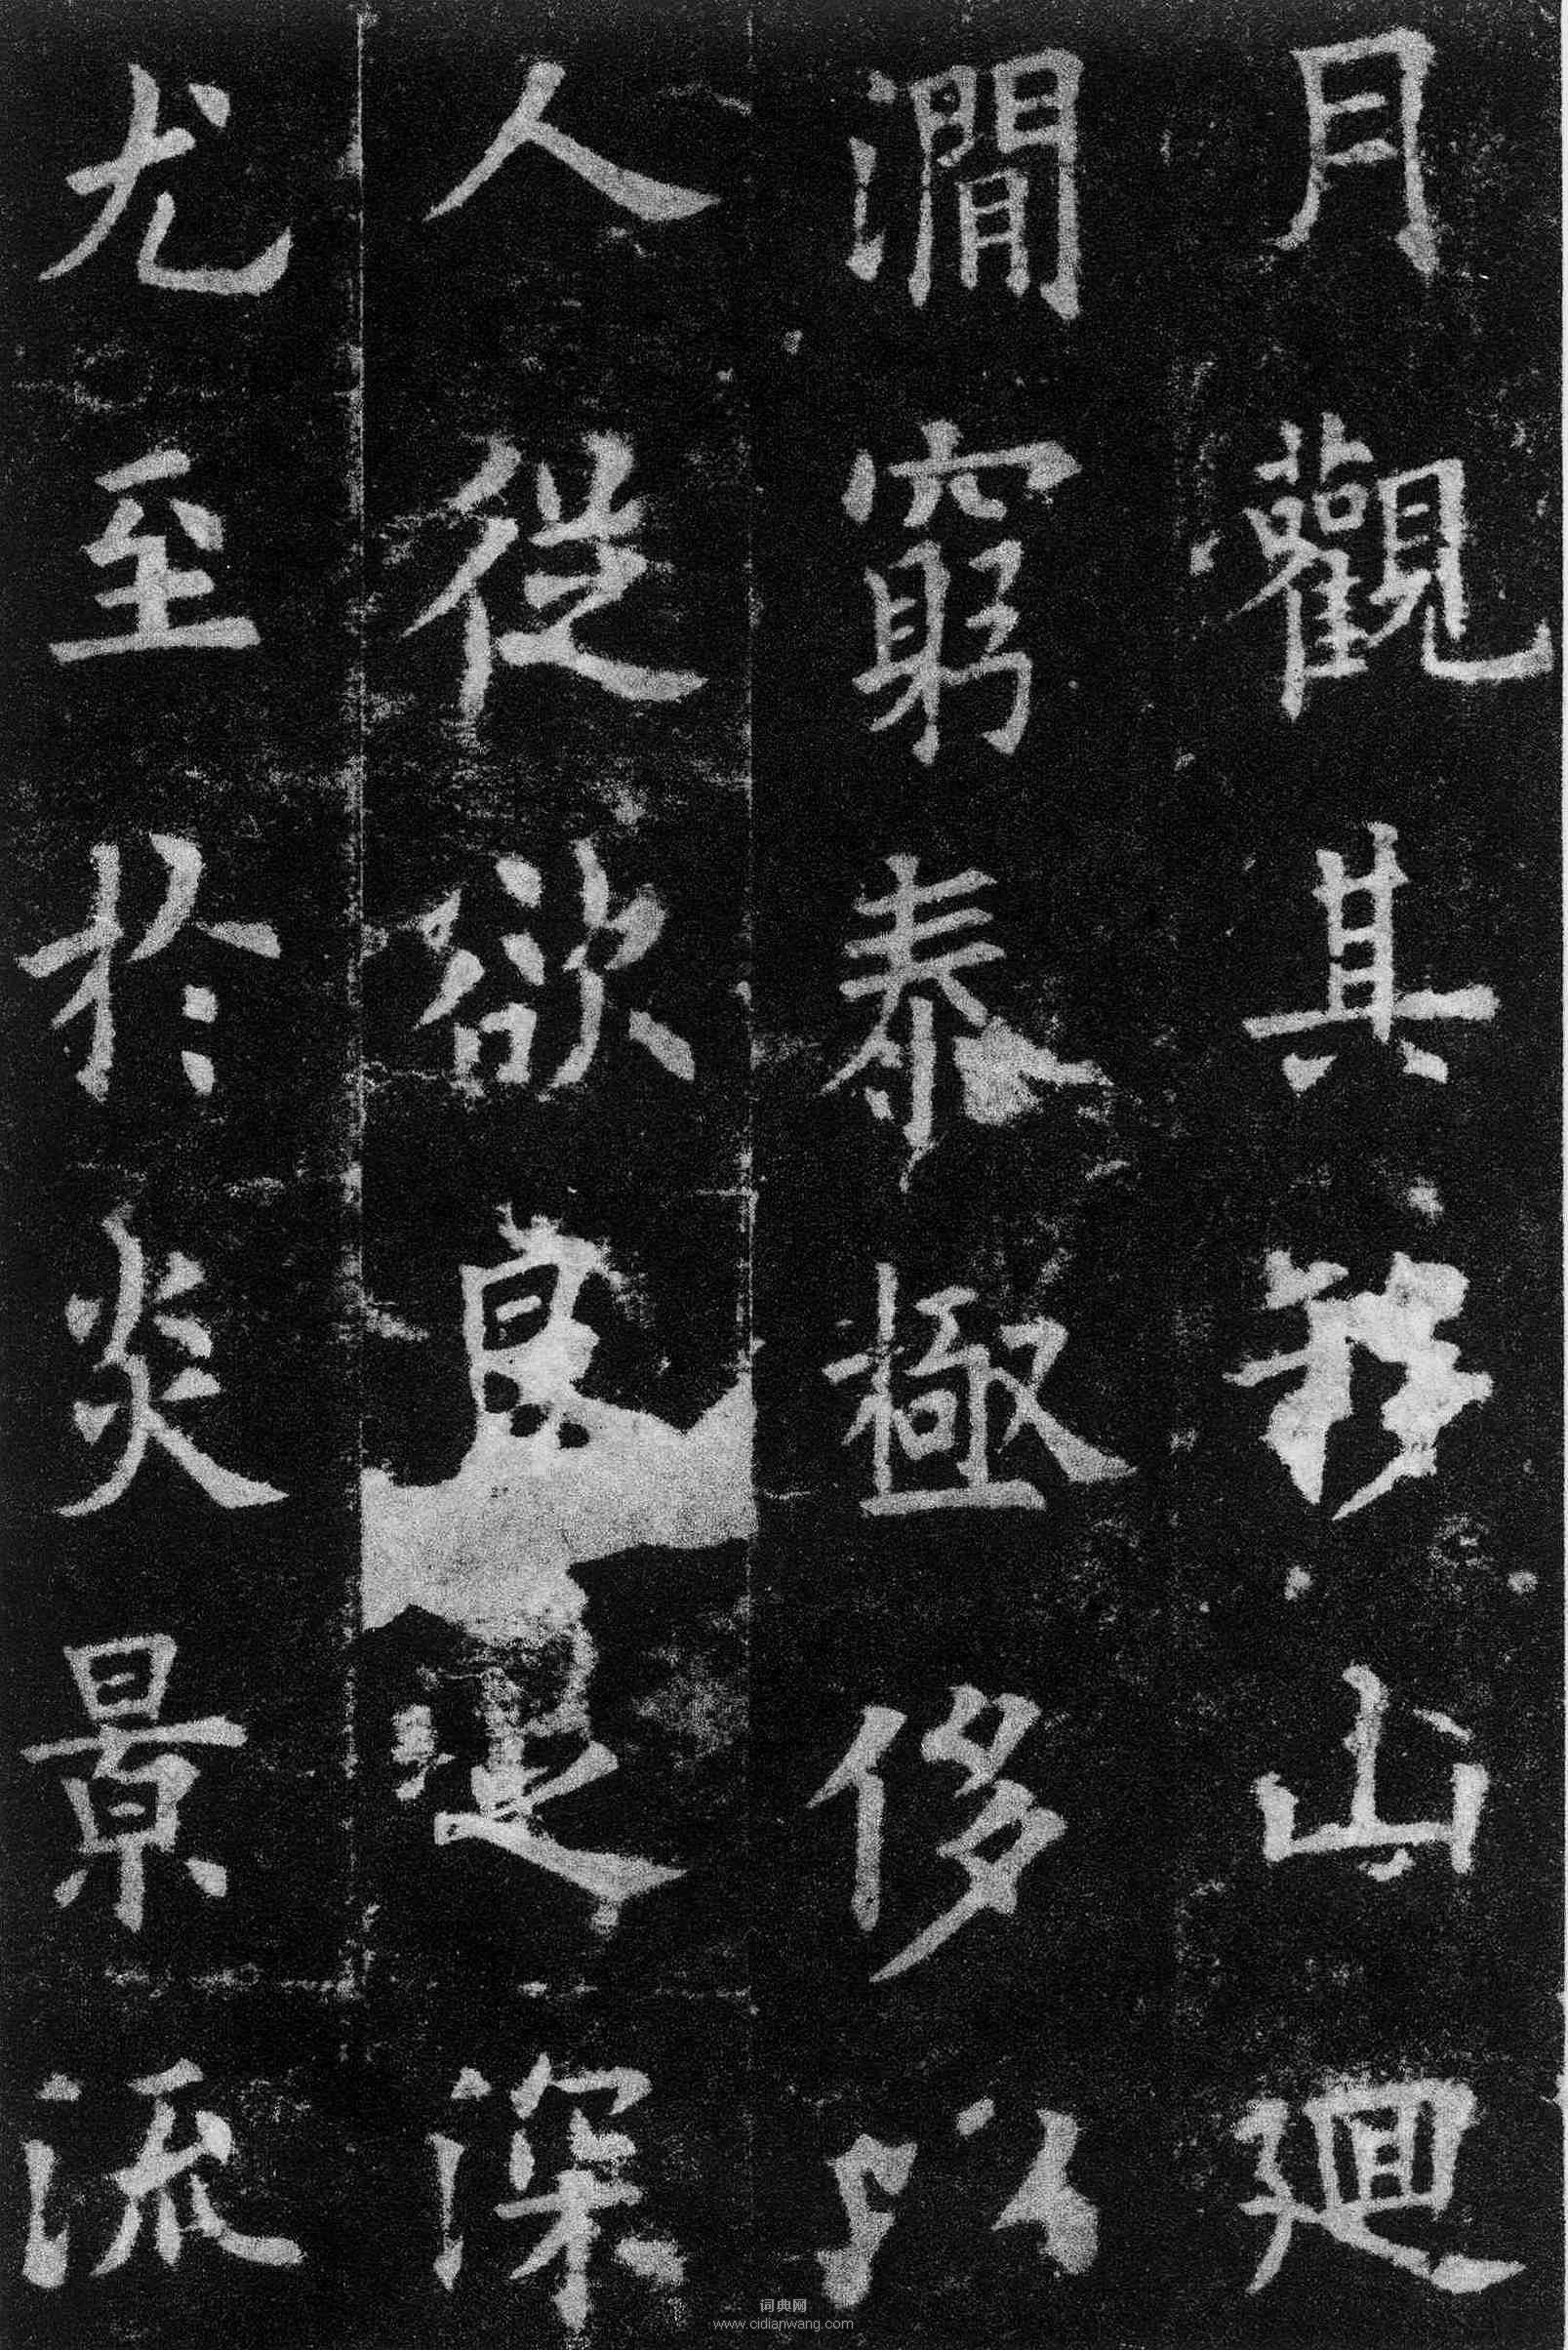 月觀其移山廻
澗窮泰極侈以
人從欲良足深
尤至於炎景流
词典网
www.cidianwang.com